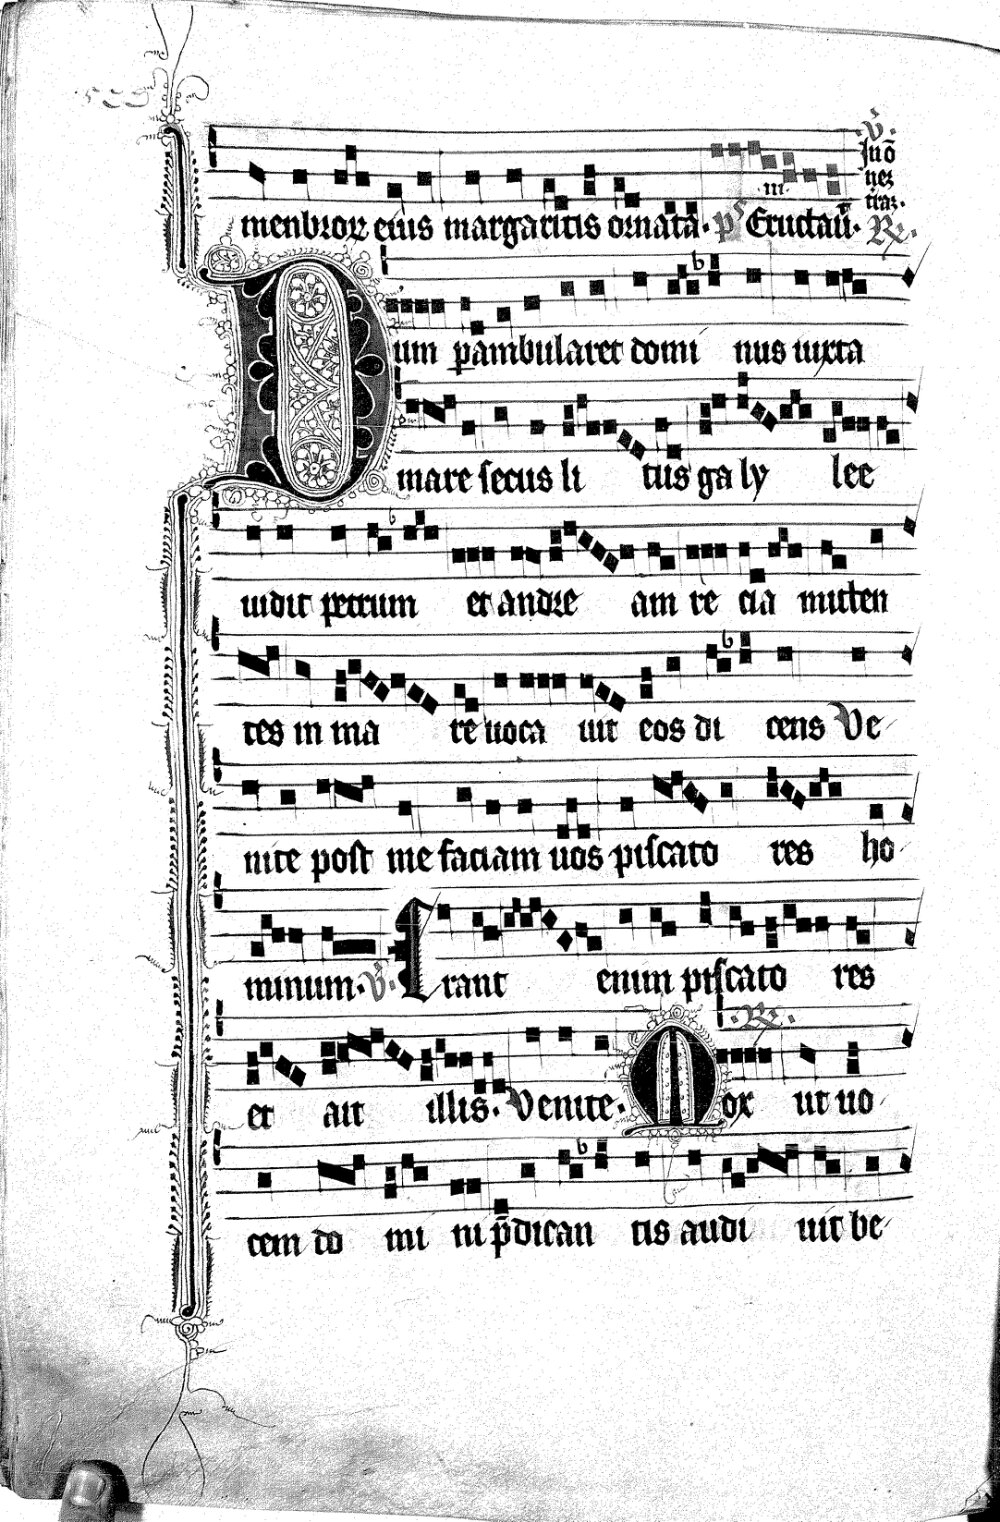 V̄. In ō
nez
traz.
menbror eius margaritis ornata. ps Eructau̅. R̷.
Dum pambularet domi nus iuxta
mare secus li tus ga ly lee
uidit petrum et andre am re cia mitten
tes in ma re uoca uit eos di cens Ve
nite post me faciam uos piscato res ho
minum. V̄. Erant enim piscato res
et ait illis. Venite. R̷. Mox ut uo
cem do mi ni p̄dican tis audi uit be